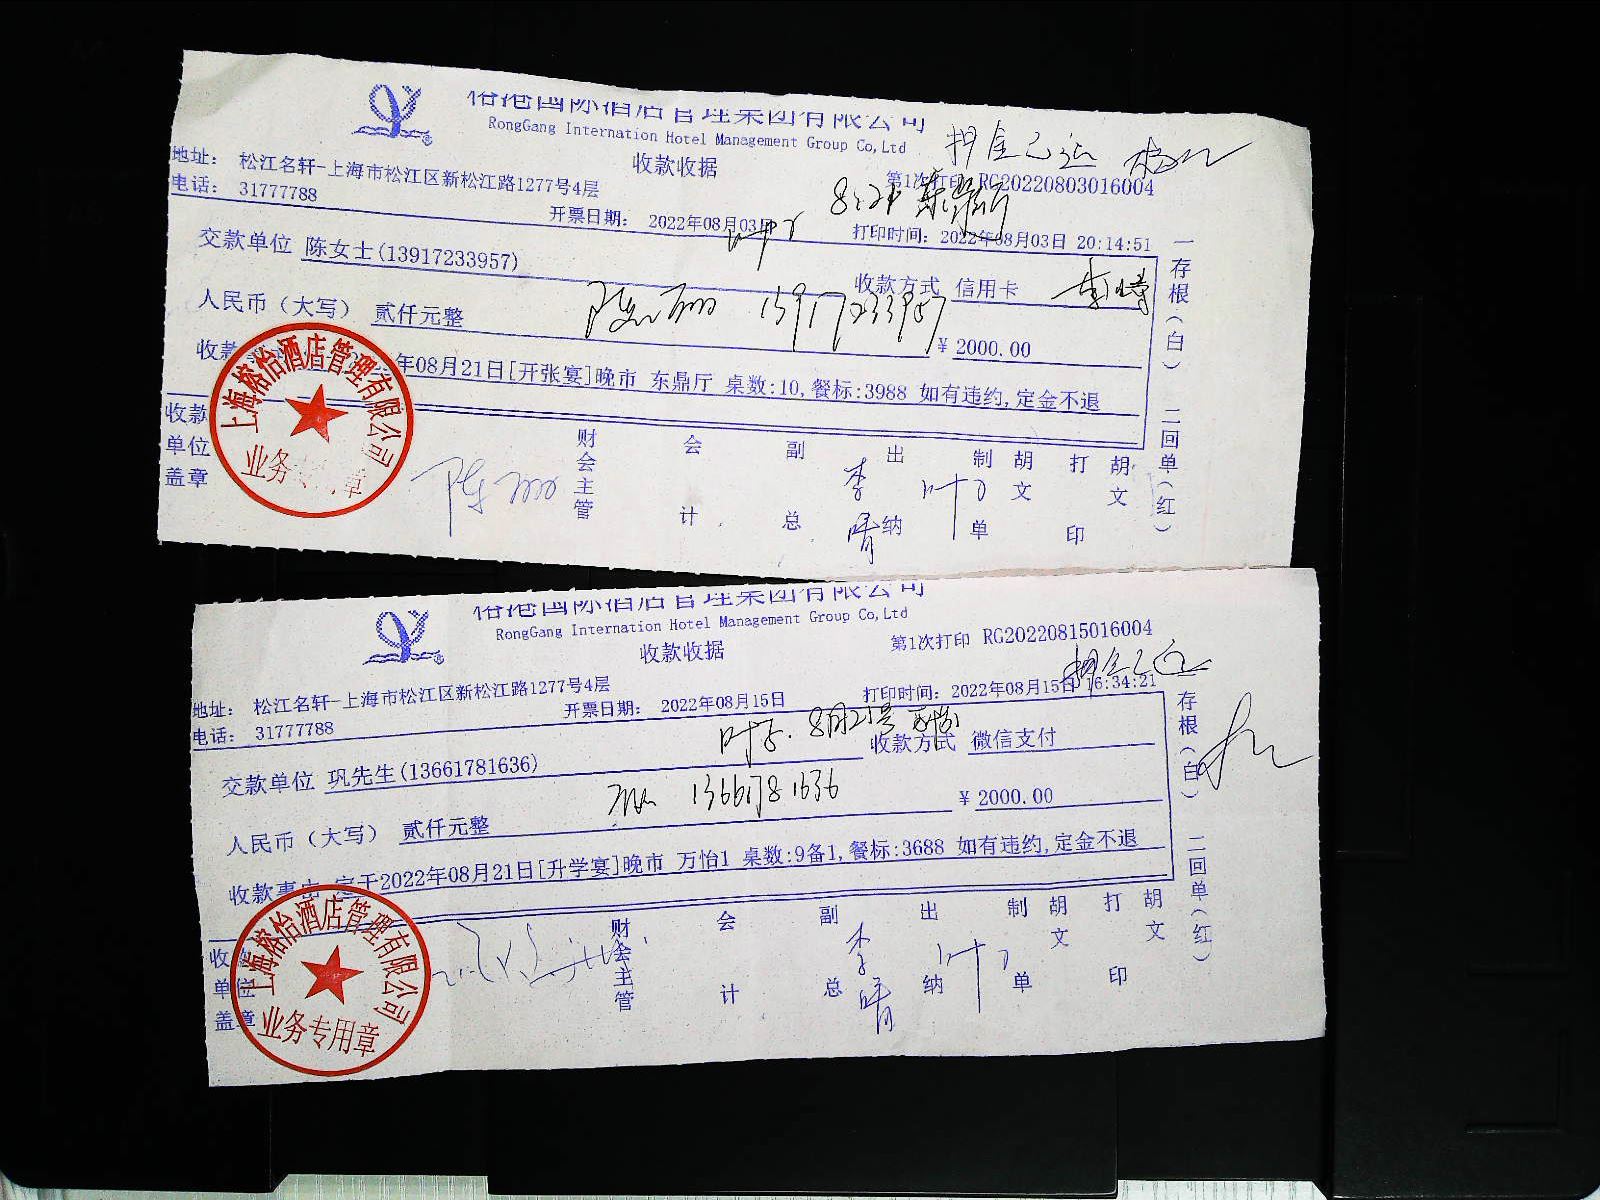 国际酒店管理集团有限公司
RongGang Internation Hotel Management Group Co,Ltd
押金已退
收款收据
第1次打印 RG20220803016004
地址： 松江名轩-上海市松江区新松江路1277号4层
电话： 31777788
8.21
开票日期： 2022年08月03日
打印时间：2022年08月03日 20:14:51
交款单位 陈女士(13917233957)
收款方式 信用卡
李晴
人民币（大写） 贰仟元整
13917233957
￥2000.00
收款 年08月21日[开张宴]晚市 东鼎厅 桌数:10,餐标:3988 如有违约,定金不退
一存根（白） 二回单（红）
收款单位盖章
上海榕怡酒店管理有限公司
业务专用章
财会主管 会计 副总 李晴 出纳 叶 制单 胡文 打印 胡文
国际酒店管理集团有限公司
RongGang Internation Hotel Management Group Co,Ltd
收款收据
第1次打印 RG20220815016004
地址： 松江名轩-上海市松江区新松江路1277号4层
电话： 31777788
开票日期： 2022年08月15日
打印时间：2022年08月15日 16:34:21
8月21号 万怡
交款单位 巩先生(13661781636)
收款方式 微信支付
13661781636
人民币（大写） 贰仟元整
￥2000.00
收款事由 定于2022年08月21日[升学宴]晚市 万怡1 桌数:9备1,餐标:3688 如有违约,定金不退
存根（白） 二回单（红）
收款单位盖章
上海榕怡酒店管理有限公司
业务专用章
财会主管 会计 副总 李晴 出纳 叶 制单 胡文 打印 胡文